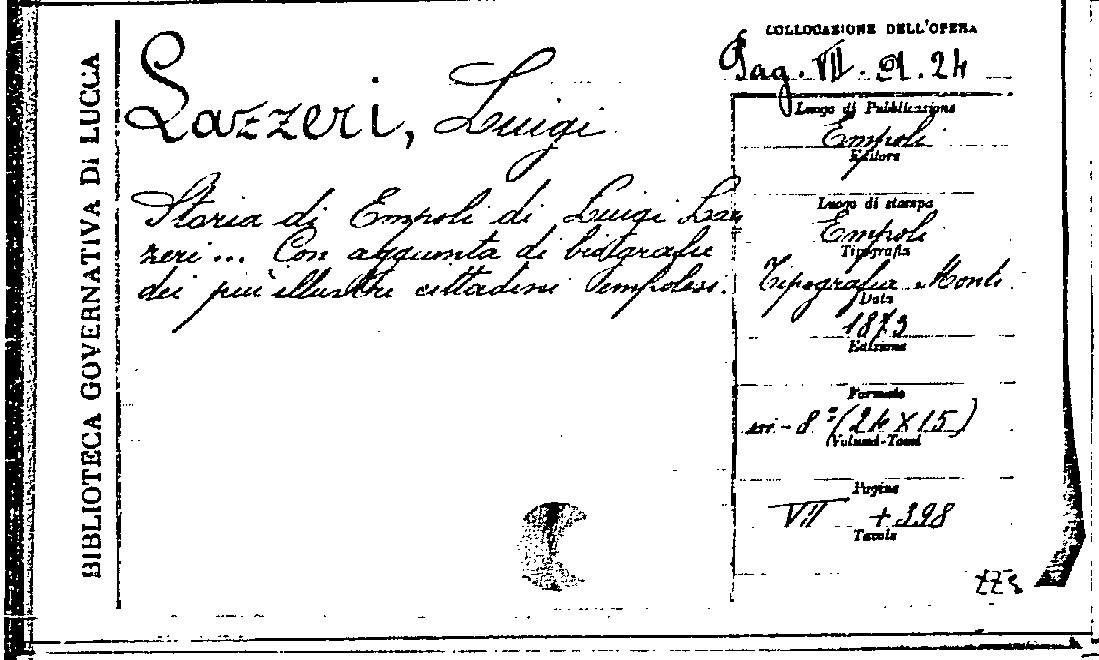 BIBLIOTECA GOVERNATIVA DI LUCCA
Lazzeri, Luigi
Storia di Empoli di Luigi Laz
zeri... Con aggiunta di biografie
dei più illustri cittadini empolesi.
COLLOCAZIONE DELL'OPERA
Pag. VII. 24
Luogo di Pubblicazione
Empoli
Editore
Luogo di stampa
Empoli
Tipografia
Tipografia Monti
Data
1873
Edizione
Formato
in-8º (24 X 15)
Volumi-Tomi
Pagine
VII + 398
Tavole